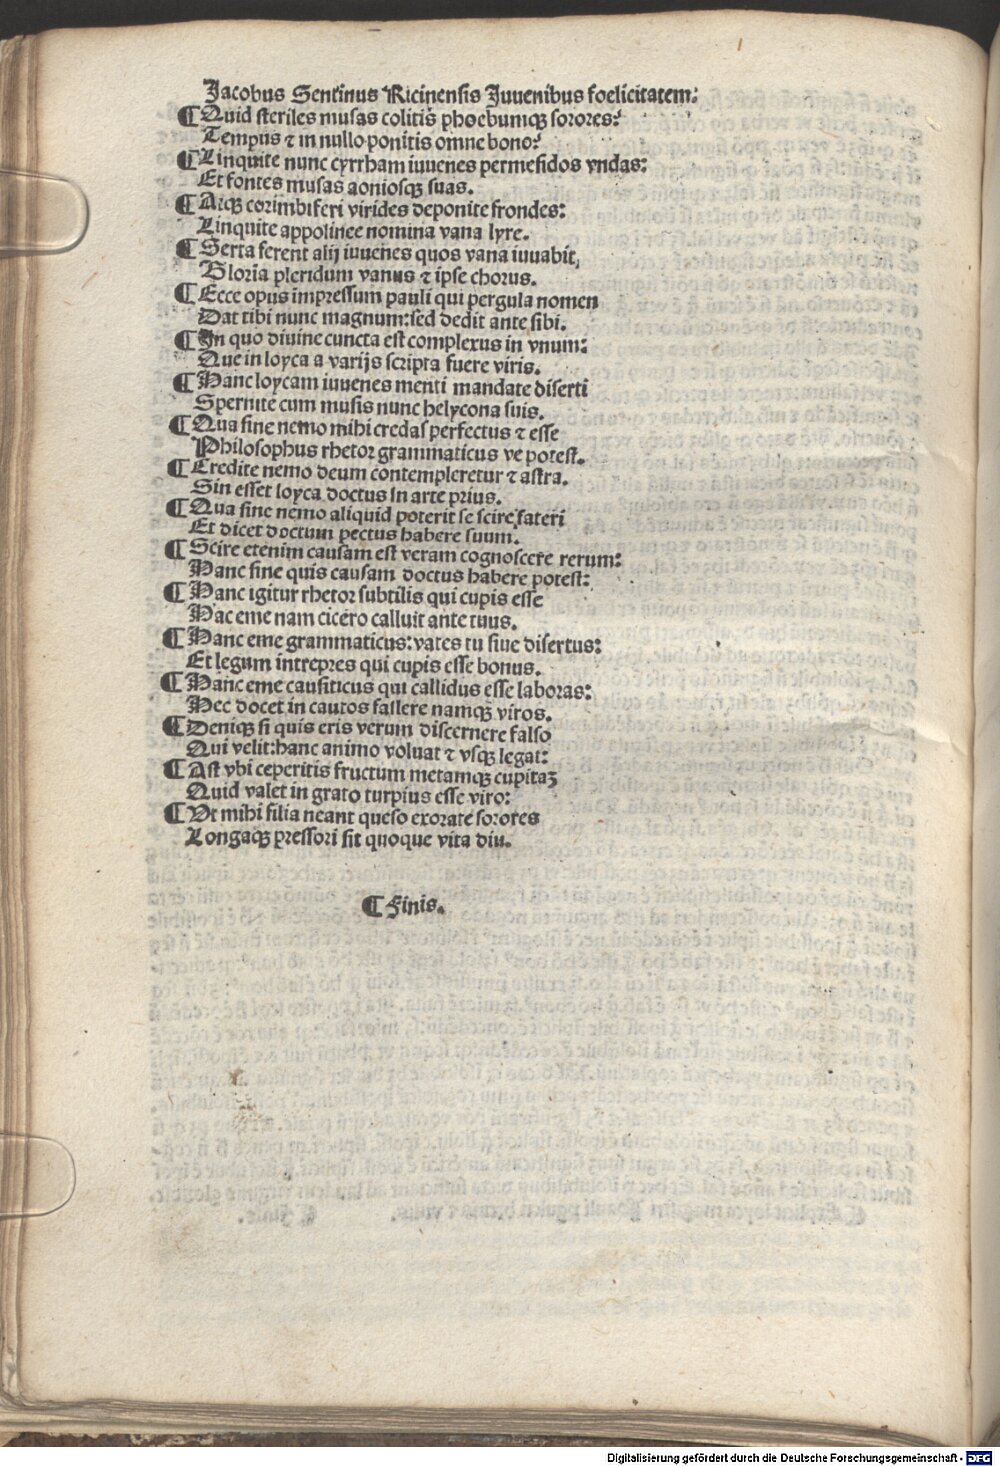 Jacobus Sentinus Ricinensis Juuenibus foelicitatem:
¶ Quid steriles musas colitis phoebumqꝫ sorores?
Tempus ⁊ in nullo ponitis omne bono?
¶ Linquite nunc cyrrham iuuenes permesidos vndas:
Et fontes musas aoniosqꝫ suas.
¶ Atqꝫ corimbiferi virides deponite frondes:
Linquite appolinee nomina vana lyre.
¶ Serta ferent alij iuuenes quos vana iuuabit,
Gloria pieridum vanus ⁊ ipse chorus.
¶ Ecce opus impressum pauli qui pergula nomen
Dat tibi nunc magnum: sed dedit ante sibi.
¶ In quo diuine cuncta est complexus in vnum:
Que in loyca a varijs scripta fuere viris.
¶ Hanc loycam iuuenes menti mandate diserti
Spernite cum musis nunc helycona suis.
¶ Qua sine nemo mihi credas perfectus ⁊ esse
Philosophus rhetor grammaticus ve potest.
¶ Credite nemo deum contempleretur ⁊ astra.
Sin esset loyca doctus in arte prius.
¶ Qua sine nemo aliquid poterit se scire fateri
Et dicet doctum pectus habere suum.
¶ Scire etenim causam est veram cognoscere rerum:
Hanc sine quis causam doctus habere potest:
¶ Hanc igitur rhetor subtilis qui cupis esse
Hac eme nam cicero calluit ante tuus.
¶ Hanc eme grammaticus: vates tu siue disertus:
Et legum intrepres qui cupis esse bonus.
¶ Hanc eme causiticus qui callidus esse laboras:
Hec docet in cautos fallere namqꝫ viros.
¶ Deniqꝫ si quis eris verum discernere falso
Qui velit: hanc animo voluat ⁊ vsqꝫ legat:
¶ Ast vbi ceperitis fructum metamqꝫ cupitaꝫ
Quid valet in grato turpius esse viro:
¶ Vt mihi filia neant queso exorate sorores
Longaqꝫ pressori sit quoque vita diu.
¶ Finis.
Digitalisierung gefördert durch die Deutsche Forschungsgemeinschaft - DFG